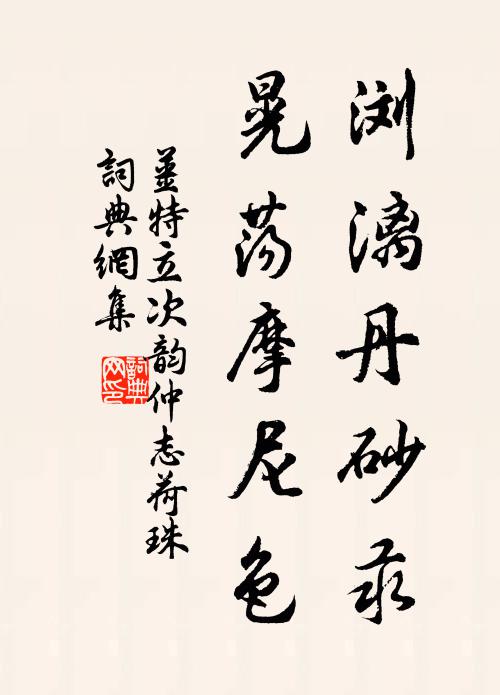 浏漓丹砂汞
晃荡摩尼色
薑特立次韵仲志荷珠
詞典網集
詞典网印